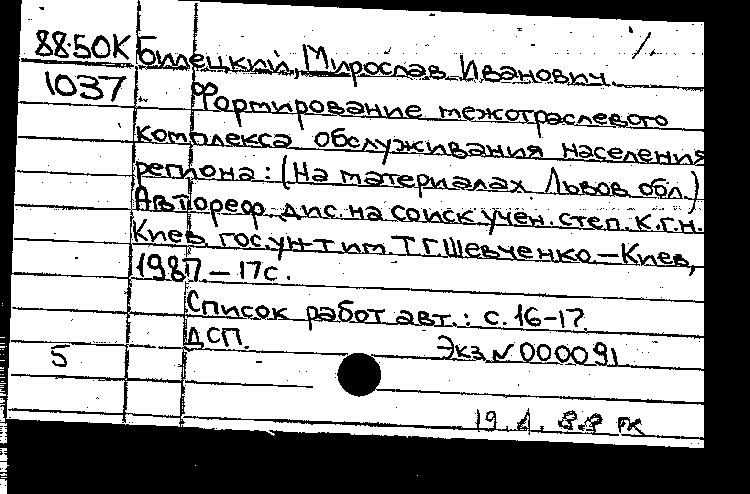 88-50К Билецкий, Мирослав Иванович.
1037 Формирование межотраслевого
комплекса обслуживания населения
региона: (На материалах Львов. обл.)
Автореф. дис. на соиск. учен. степ. К.Г.Н.
Киев. гос. ун-т им. Т.Г. Шевченко. – Киев,
1987. – 17 с.
Список работ авт.: с. 16-17
ДСП.
5 Экз. N 000091
19.1.88